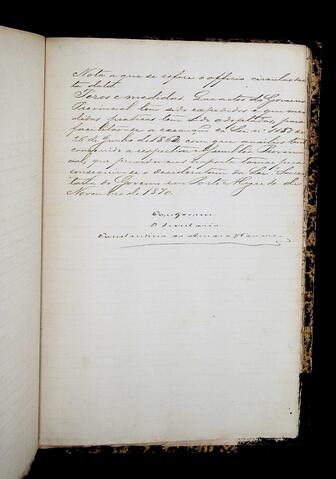 Nota a que se refere o officio circular des
ta data
Pezos e medidas. Que actos do Governo
Provincial tem sido expedidos e que me
didas praticas tem sido adoptadas para
facilitar-se a execução da Lei nº 1157 de
26 de Junho de 1862, com que quantias tem
concorrido a respectiva Assemblea Provin
cial, que providencias importa tomar para
conseguir-se o desideratum da Lei. Secre
taria do Governo em Porto Alegre de
Novembro de 1870.
Conforme
O Secretario
Constantino de